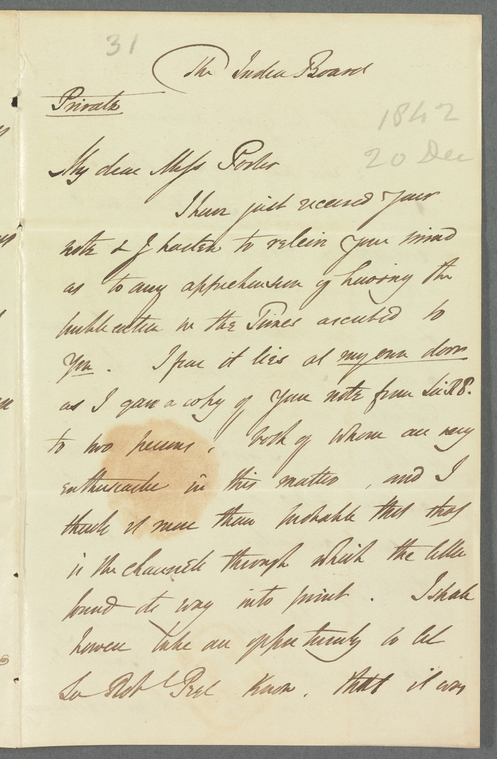 31
The India Board
Private
1842
20 Dec
My dear Miss Porter
I have just received your
note & I hasten to relieve your mind
as to any apprehension of having the
publication in the Times ascribed to
you. I fear it lies at my own door
as I gave a copy of your note from Sir RP.
to two persons, both of whom are very
enthusiastic in this matter, and I
think it more than probable that that
is the channel through which the letter
found its way into print. I shall
however take an opportunity to let
Sir Robt Peel know, that it was